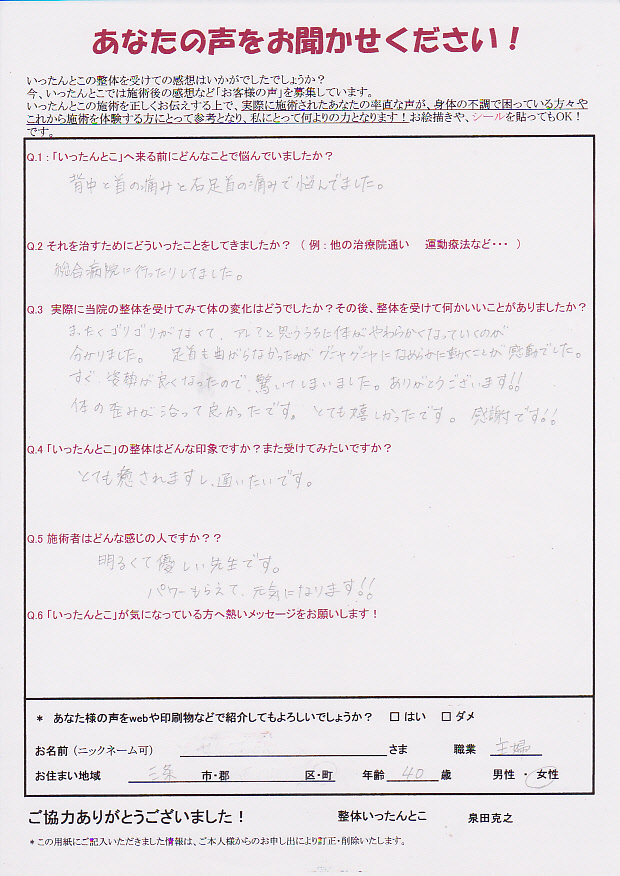 あなたの声をお聞かせください！
いったんとこの整体を受けての感想はいかがでしたでしょうか？
今、いったんとこでは施術後の感想など「お客様の声」を募集しています。
いったんとこの施術を正しくお伝えする上で、実際に施術されたあなたの率直な声が、身体の不調で困っている方々や
これから施術を体験する方にとって参考となり、私にとって何よりの力となります！お絵描きや、シールを貼ってもOK！
です。
Q.1：「いったんとこ」へ来る前にどんなことで悩んでいましたか？
背中と首の痛みと右足首の痛みで悩んでました。
Q.2 それを治すためにどういったことをしてきましたか？（例：他の治療院通い 運動療法など・・・ ）
総合病院に行ったりしてました。
Q.3 実際に当院の整体を受けてみて体の変化はどうでしたか？その後、整体を受けて何かいいことがありましたか？
まったくゴリゴリがなくて、アレ？と思ううちに体がやわらかくなっていくのが
分かりました。 足首も曲がらなかったのがグニャグニャになめらかに動くことが感動でした。
すぐ、姿勢が良くなったので、驚いてしまいました。ありがとうございます!!
体の歪みが治って良かったです。とても嬉しかったです。感謝です!!
Q.4 「いったんとこ」の整体はどんな印象ですか？また受けてみたいですか？
とても癒されますし、通いたいです。
Q.5 施術者はどんな感じの人ですか？？
明るくて優しい先生です。
パワーもらえて、元気になります!!
Q.6 「いったんとこ」が気になっている方へ熱いメッセージをお願いします！
* あなた様の声をwebや印刷物などで紹介してもよろしいでしょうか？ □ はい □ ダメ
お名前（ニックネーム可） さま 職業 主婦
お住まい地域 三条 市・郡 区・町 年齢 40 歳 男性 ・ 女性
ご協力ありがとうございました！ 整体いったんとこ 泉田克之
* この用紙にご記入いただきました情報は、ご本人様からのお申し出により訂正・削除いたします。